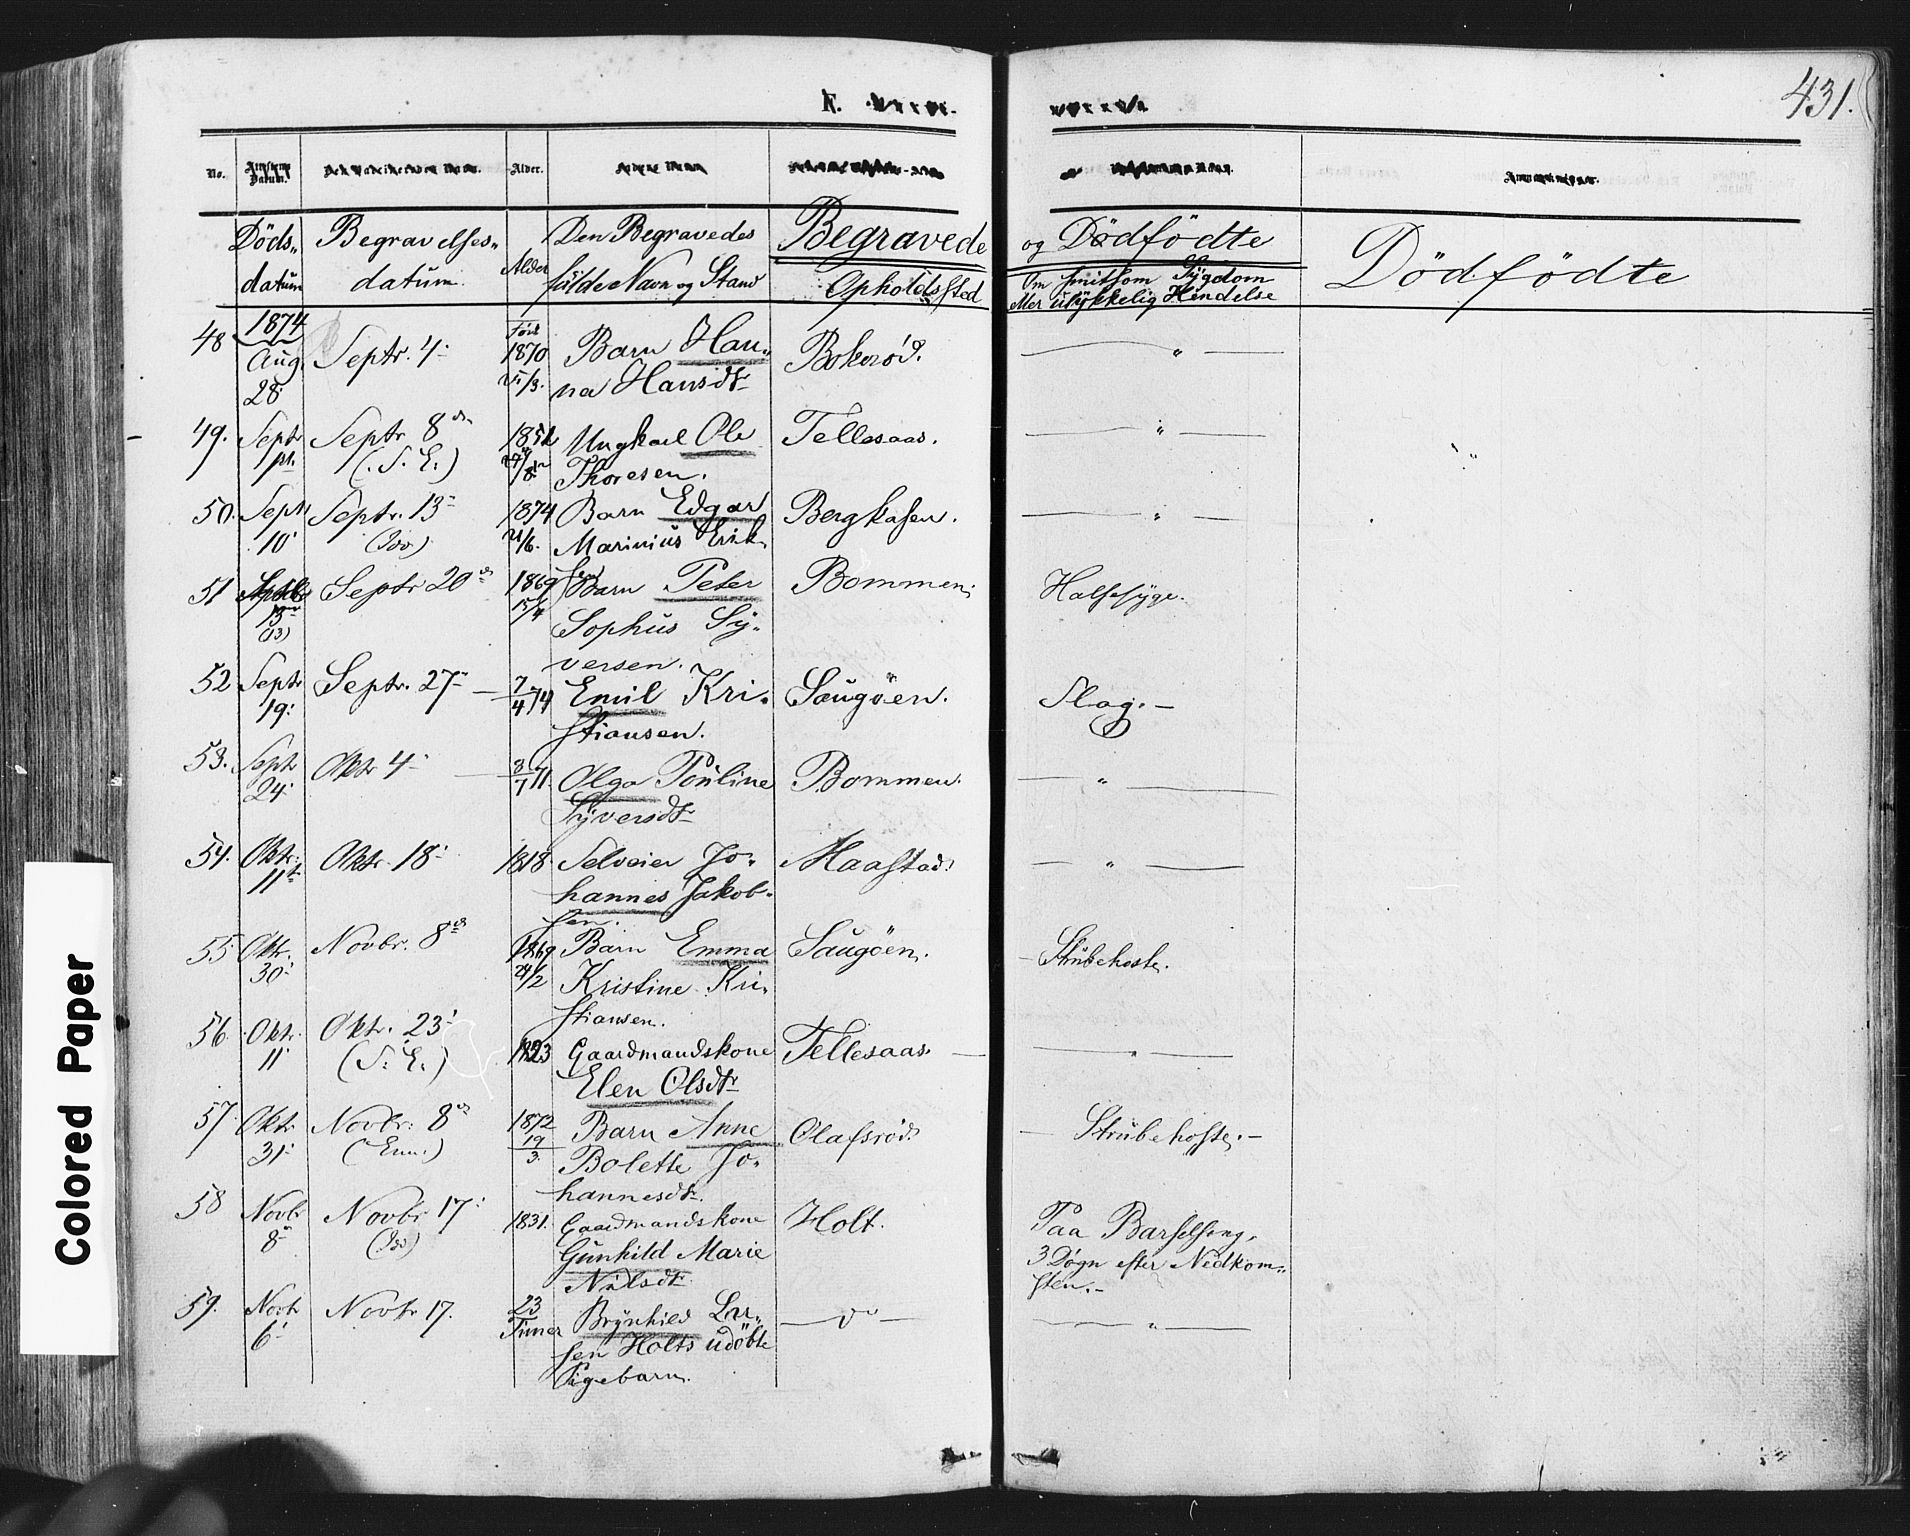 431.
No.
Alder.
Døds-
datum
Begravelses-
datum.
Alder
Den Begravedes
fulde Navn og Stand
Begravede
Opholdssted
og Dødfödte
Om smitsom Sygdom
eller ulykkelig Hendelse
Dödfödte
48
1874
Aug.
28
Septr. 4
Født
1870
Barn Han-
na Hansdtr
49.
Septr
1
Septr 8de
(S. E.)
Ungkarl Ole
Thoresen.
Tellesaas.
50.
Septr
10
Septr. 13
1874
21/6.
Barn Edgar
Marinius Erik-
sen
Bergkasen.
51
13
(13)
Septr 20de
1869
15/4
Barn Peter
Sophus Sy-
versen.
Bommen.
Halssyge.
52
Septr
19.
Septr. 27
7/4 74
Emil Kri-
stiansen.
Saugøen.
Slag.
53.
Septr
24
Oktr 4
8/7 71.
Olga Pouline
Syversdtr
Bommen.
54.
Oktr.
11te
Oktr. 18
1818.
Selveier Jo-
hannes Jakob-
sen.
Maastad.
55
Oktr.
30
Novbr. 8de
1869
24/2
Barn Emma
Kristine Kri-
stiansen.
Saugöen.
Strubehoste.
56.
Oktr.
11
Oktr. 23
(S. E.)
1823
Gaardmandskone
Elen Olsdtr
Tellesaas.
57.
Oktr
31
Novbr. 8de
(Enn.)
1872
19/3.
Barn Anne
Bolette Jo-
hannesdtr.
Olafsrød.
Strubehoste.
58
Novbr
8
Novbr 17
1831.
Gaardmandskone
Gunhild Marie
Nilsdtr
Holt.
Paa Barselseng,
3 Døgn efter Nedkom-
sten.
59.
Novbr
6
Novbr 17.
23
Timer
Brynhild Lar-
sen Holts udøbte
Pigebarn.
Colored Paper